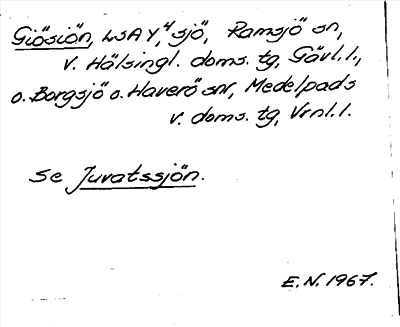 Giösiön, LSAY, 4 sjö, Ramsjö sn,
v. Hälsingl. doms. tg, Gävl.l.,
o. Borgsjö o. Haverö snr, Medelpads
v. doms. tg, Vrnl.l.
Se Juvatssjön.
E.N. 1967.